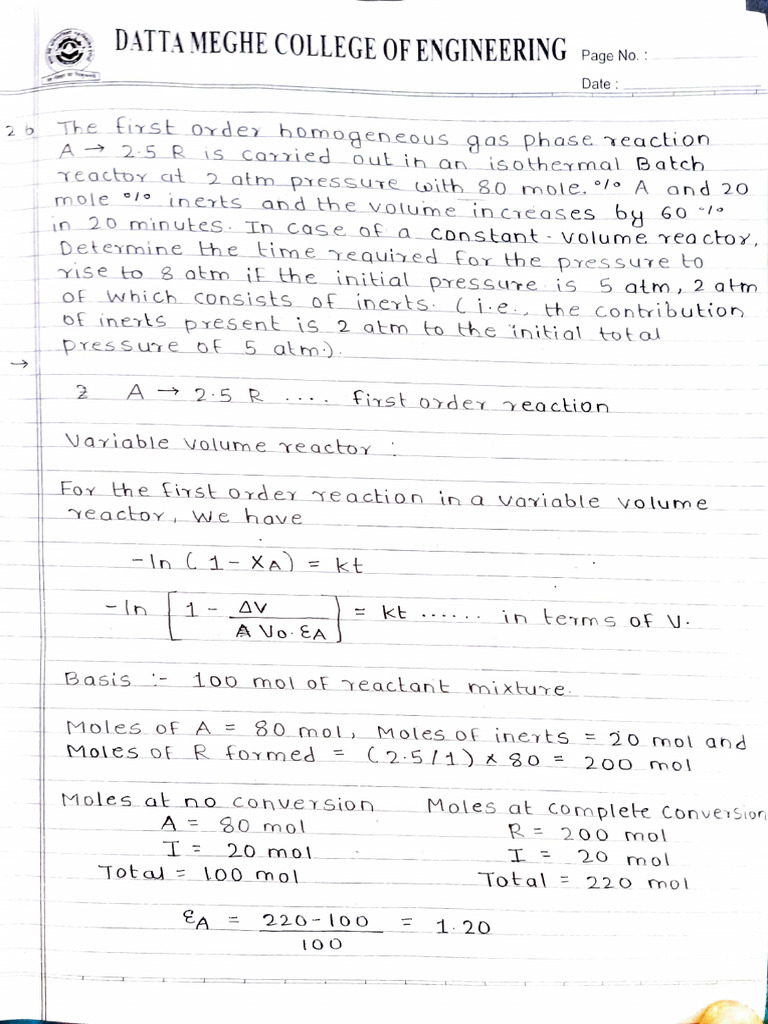 DATTA MEGHE COLLEGE OF ENGINEERING Page No. :
Date :
2 b The first order homogeneous gas phase reaction
A → 2.5 R is carried out in an isothermal Batch
reactor at 2 atm pressure with 80 mole. % A and 20
mole % inerts and the volume increases by 60 %
in 20 minutes. In case of a constant - volume reactor,
Determine the time required for the pressure to
rise to 8 atm if the initial pressure is 5 atm, 2 atm
of which consists of inerts. (i.e., the contribution
of inerts present is 2 atm to the initial total
pressure of 5 atm.).
→
2 A → 2.5 R .... first order reaction
Variable volume reactor :
For the first order reaction in a variable volume
reactor, we have
-ln (1 - XA) = kt
-ln [1 - ΔV / V0. εA] = kt ...... in terms of V.
Basis :- 100 mol of reactant mixture.
Moles of A = 80 mol, Moles of inerts = 20 mol and
Moles of R formed = (2.5/1) x 80 = 200 mol
Moles at no conversion Moles at complete conversion
A = 80 mol R = 200 mol
I = 20 mol I = 20 mol
Total = 100 mol Total = 220 mol
εA = 220-100 / 100 = 1.20